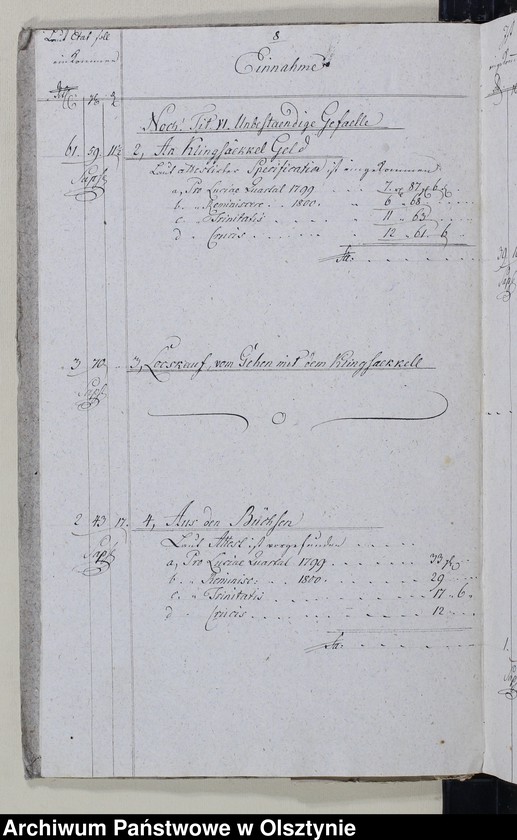 Laut Etat soll
einkommen
8
Einnahme
Noch. Tit. VI. Unbestaendige Gefaelle
61 59 11½ 2, An Klingsäckkel Geld
Laut attestirter Specification ist eingekommen
a, Pro Luciae Quartal 1799 7 87 6
b, " Reminiscere 1800. " 6 68
c, " Trinitatis 11 63
d " Crucis 12 61 6
Sa.
3 70 3, Loeskauf vom Gehen mit dem Klingsaekkell
2 43 17. 4, Aus den Büchsen
Laut Attest ist vorgefunden
a, Pro Luciae Quartal 1799 33
b. " Reminisc: 1800 29
c. " Trinitatis 17 6
d " Crucis 12
Sa.
Archiwum Państwowe w Olsztynie